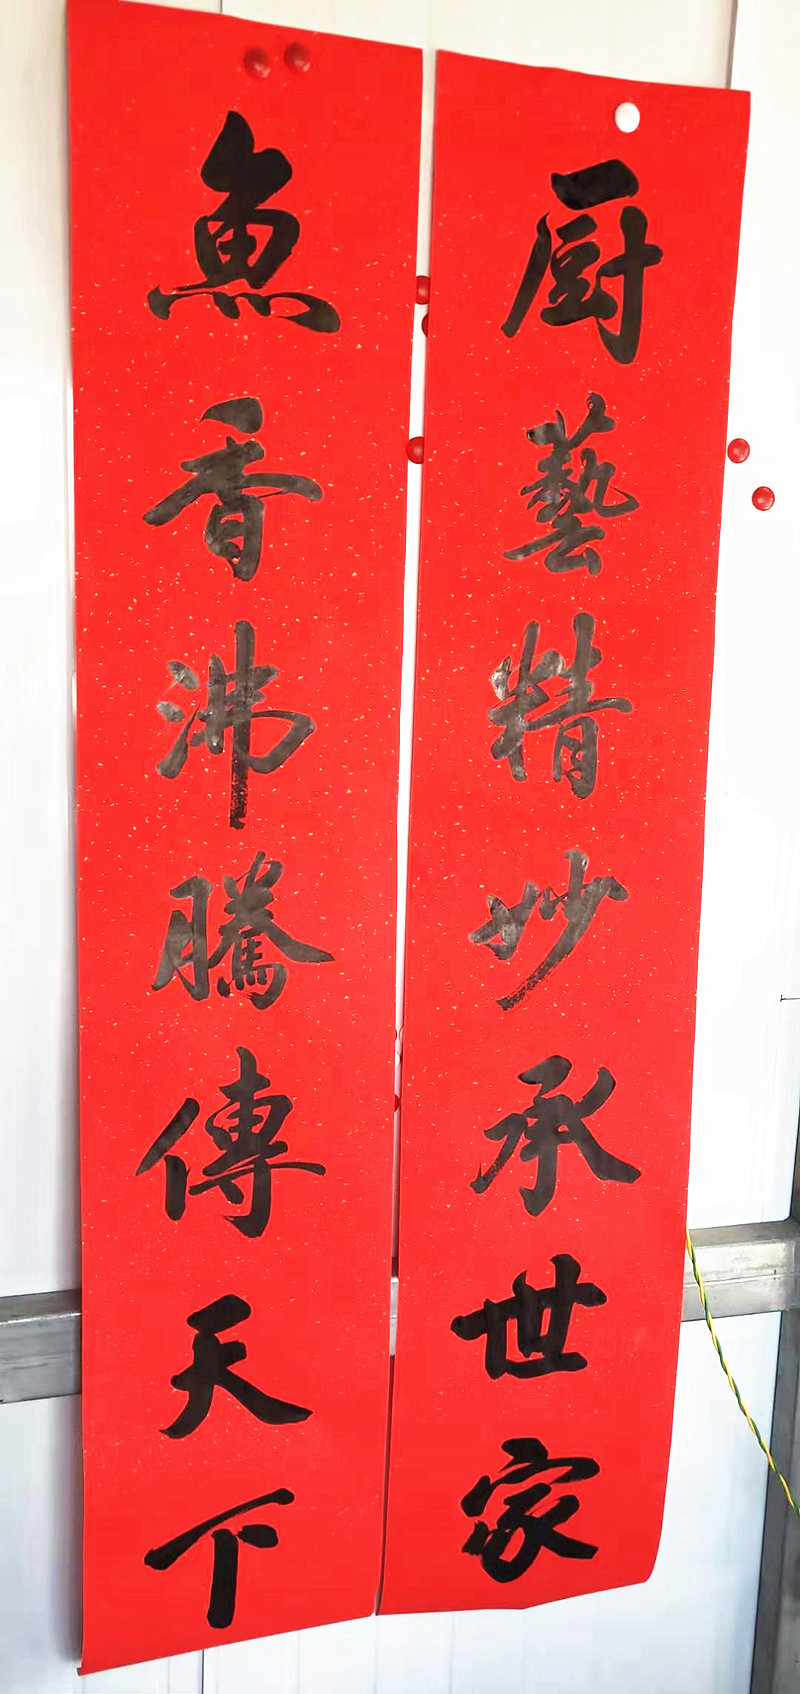 厨藝精妙承世家
魚香沸騰傳天下